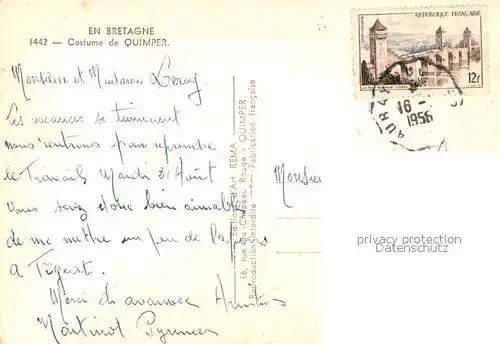 EN BRETAGNE
1442 — Costume de QUIMPER.
Monsieur et Madame Leroy.
Les vacances se terminent
nous rentrons pour reprendre
le Travail Mardi 21 Août
vous serez donc bien aimables
de me mettre un peu de
a
Merci d'avance Amitiés
Martinot Pyrenees
Editions d'Art REMA
16, rue du Chapeau Rouge - QUIMPER
Reproduction Interdite - Fabrication française
Monsieur
REPUBLIQUE FRANÇAISE
POSTES
12F
16
1956
privacy protection
watermark